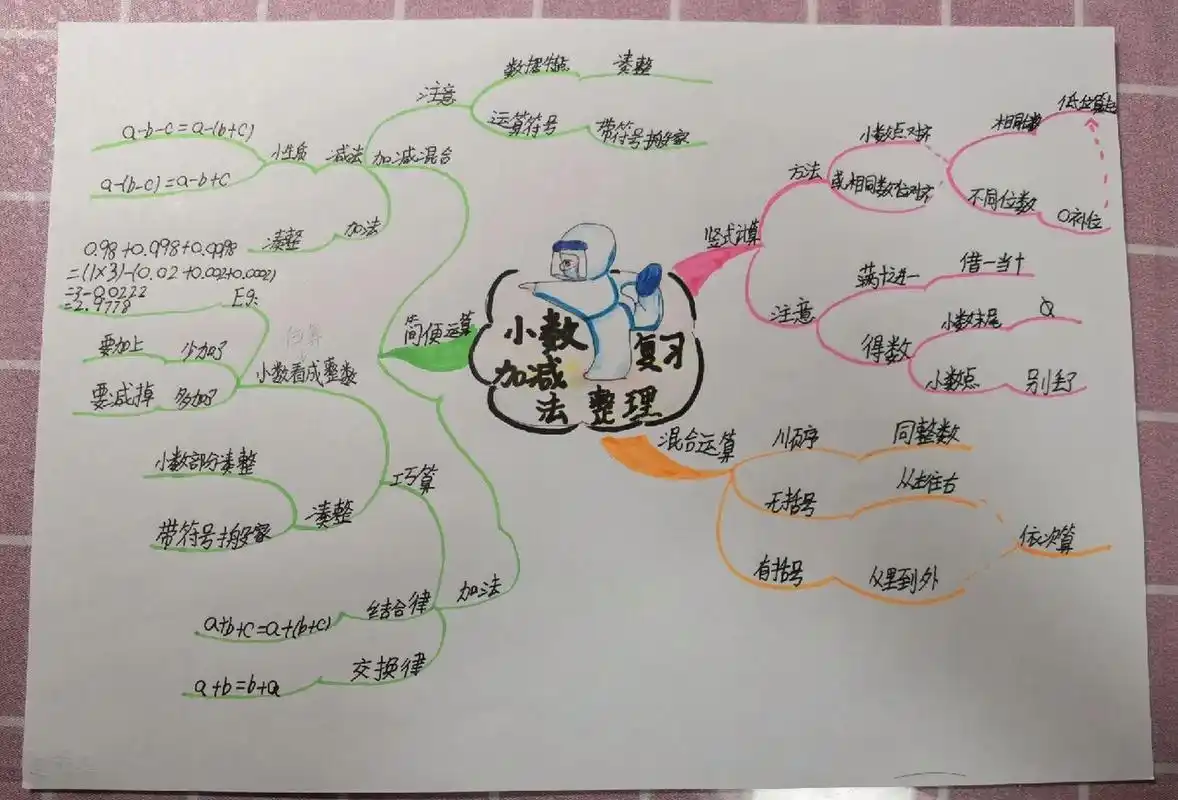 小数
加减
法
复习
整理
竖式计算
方法
小数点对齐
或相同数位对齐
相同位数
低位算起
不同位数
0补位
注意
满十进一
借一当十
得数
小数末尾
小数点
别丢了
混合运算
顺序
同整数
无括号
从左往右
有括号
从里到外
依次算
简便运算
加减混合
注意
数据特点
凑整
运算符号
带符号搬家
减法
小性质
a-b-c=a-(b+c)
a-(b-c)=a-b+c
加法
凑整
加法
巧算
小数看成整数
估算
Eg:
0.98+0.998+0.9998
=(1×3)-(0.02+0.002+0.0002)
=3-0.0222
=2.9778
少加了
要加上
多加了
要减掉
凑整
小数部分凑整
带符号搬家
结合律
a+b+c=a+(b+c)
交换律
a+b=b+a